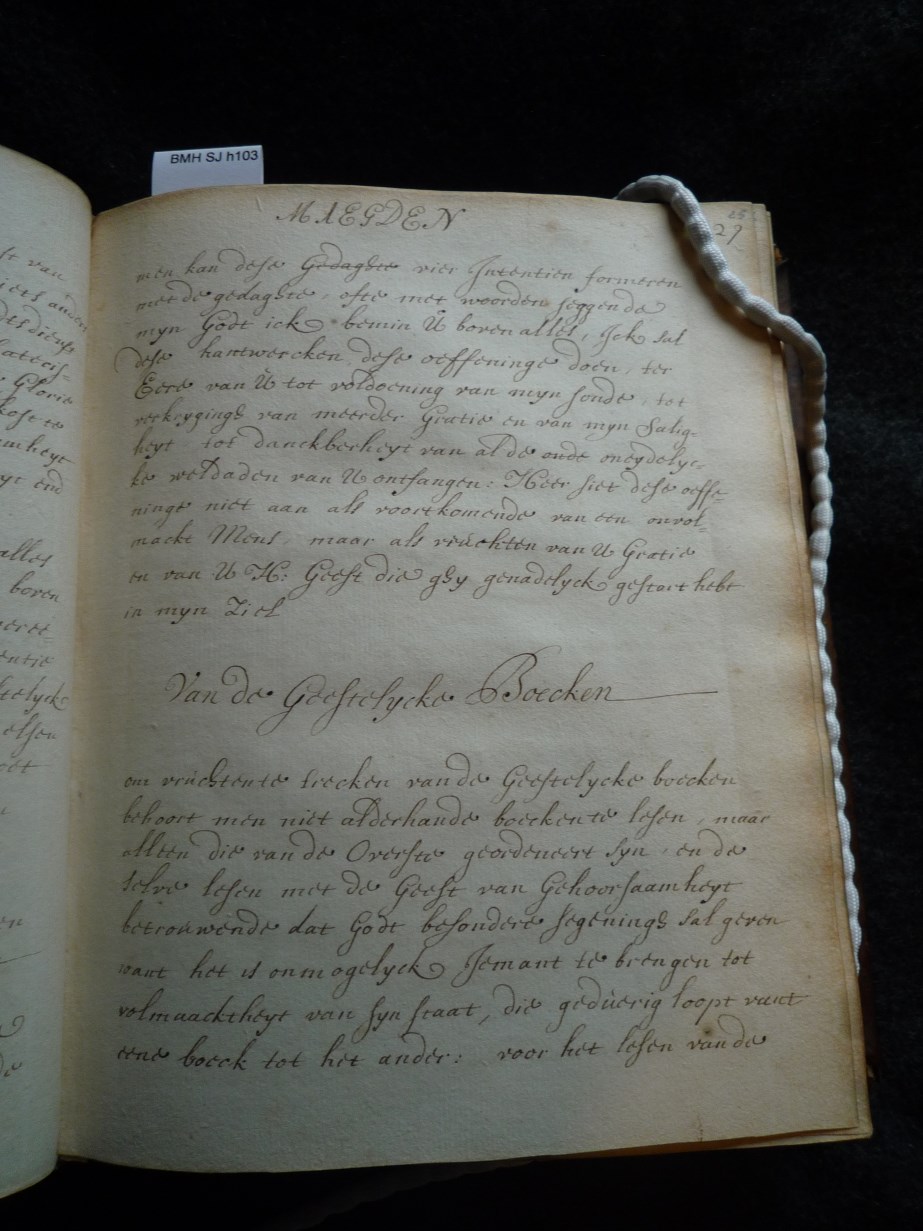 BMH SJ h103
MAEGDEN
25
27
men kan dese Gedagte vier Intentien formeren
met de gedagte, ofte met woorden seggende
myn Godt ick bemin U boven alles, Ick sal
dese hantwercken, dese oeffeninge doen, ter
Eere van U tot voldoening van myn sonde, tot
verkryginge van meerder Gratie en van myn Salig-
heyt tot danckberheyt van al de onde oneydelyc-
ke weldaden van U ontfangen: Heer siet dese oeffe-
ninge niet aan als voortkomende van een onvol-
mackt Mens, maar als vruchten van U Gratie
en van U H: Geest die ghy genadelyck gestort hebt
in myn Ziel
Van de Geestelycke Boecken
om vruchten te trecken van de Geestelycke boecken
behoort men niet alderhande boecken te lesen, maar
alleen die van de Overste geordeneert syn, en de
selve lesen met de Geest van Gehoorsaamheyt
betrouwende dat Godt besondere segeninge sal geven
want het is onmogelyck Iemant te brengen tot
volmaacktheyt van syn staat, die geduerig loopt vant
eene boeck tot het ander: voor het lesen van de
st van
iets anders
Glorie
amheyt
alles
boven